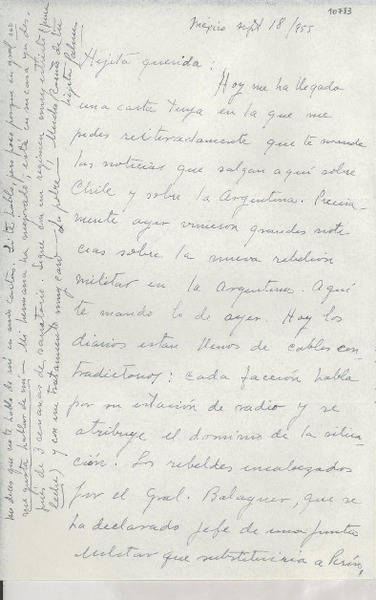 10733
Mexico sept 18/955
Hijita querida:
Hoy me ha llegado
una carta tuya en la que me
pides reiteradamente que te mande
las noticias que salgan aquí sobre
Chile y sobre la Argentina. Precisa-
mente ayer vinieron grandes noti-
cias sobre la nueva rebelión
militar en la Argentina. Aquí
te mando lo de ayer. Hoy los
diarios estan llenos de cables con-
tradictorios: cada facción habla
por su estación de radio y se
atribuye el dominio de la situa-
ción. Los rebeldes encabezados
por el Gral. Balaguer, que se
ha declarado jefe de una junta
militar que substituiria a Perón,
me dices que no te hablo de mí en mis cartas. Si te hablo, pero poco porque en gral no
me gusta hablar de mí. Mi hermana ha mejorado, está en mi casa ya des-
pués de 3 semanas de sanatorio. Sigue con un regimen muy estricto (pura
leche) y con un tratamiento muy caro. La pobre. Mucho cariño de tu
hijita Palma.